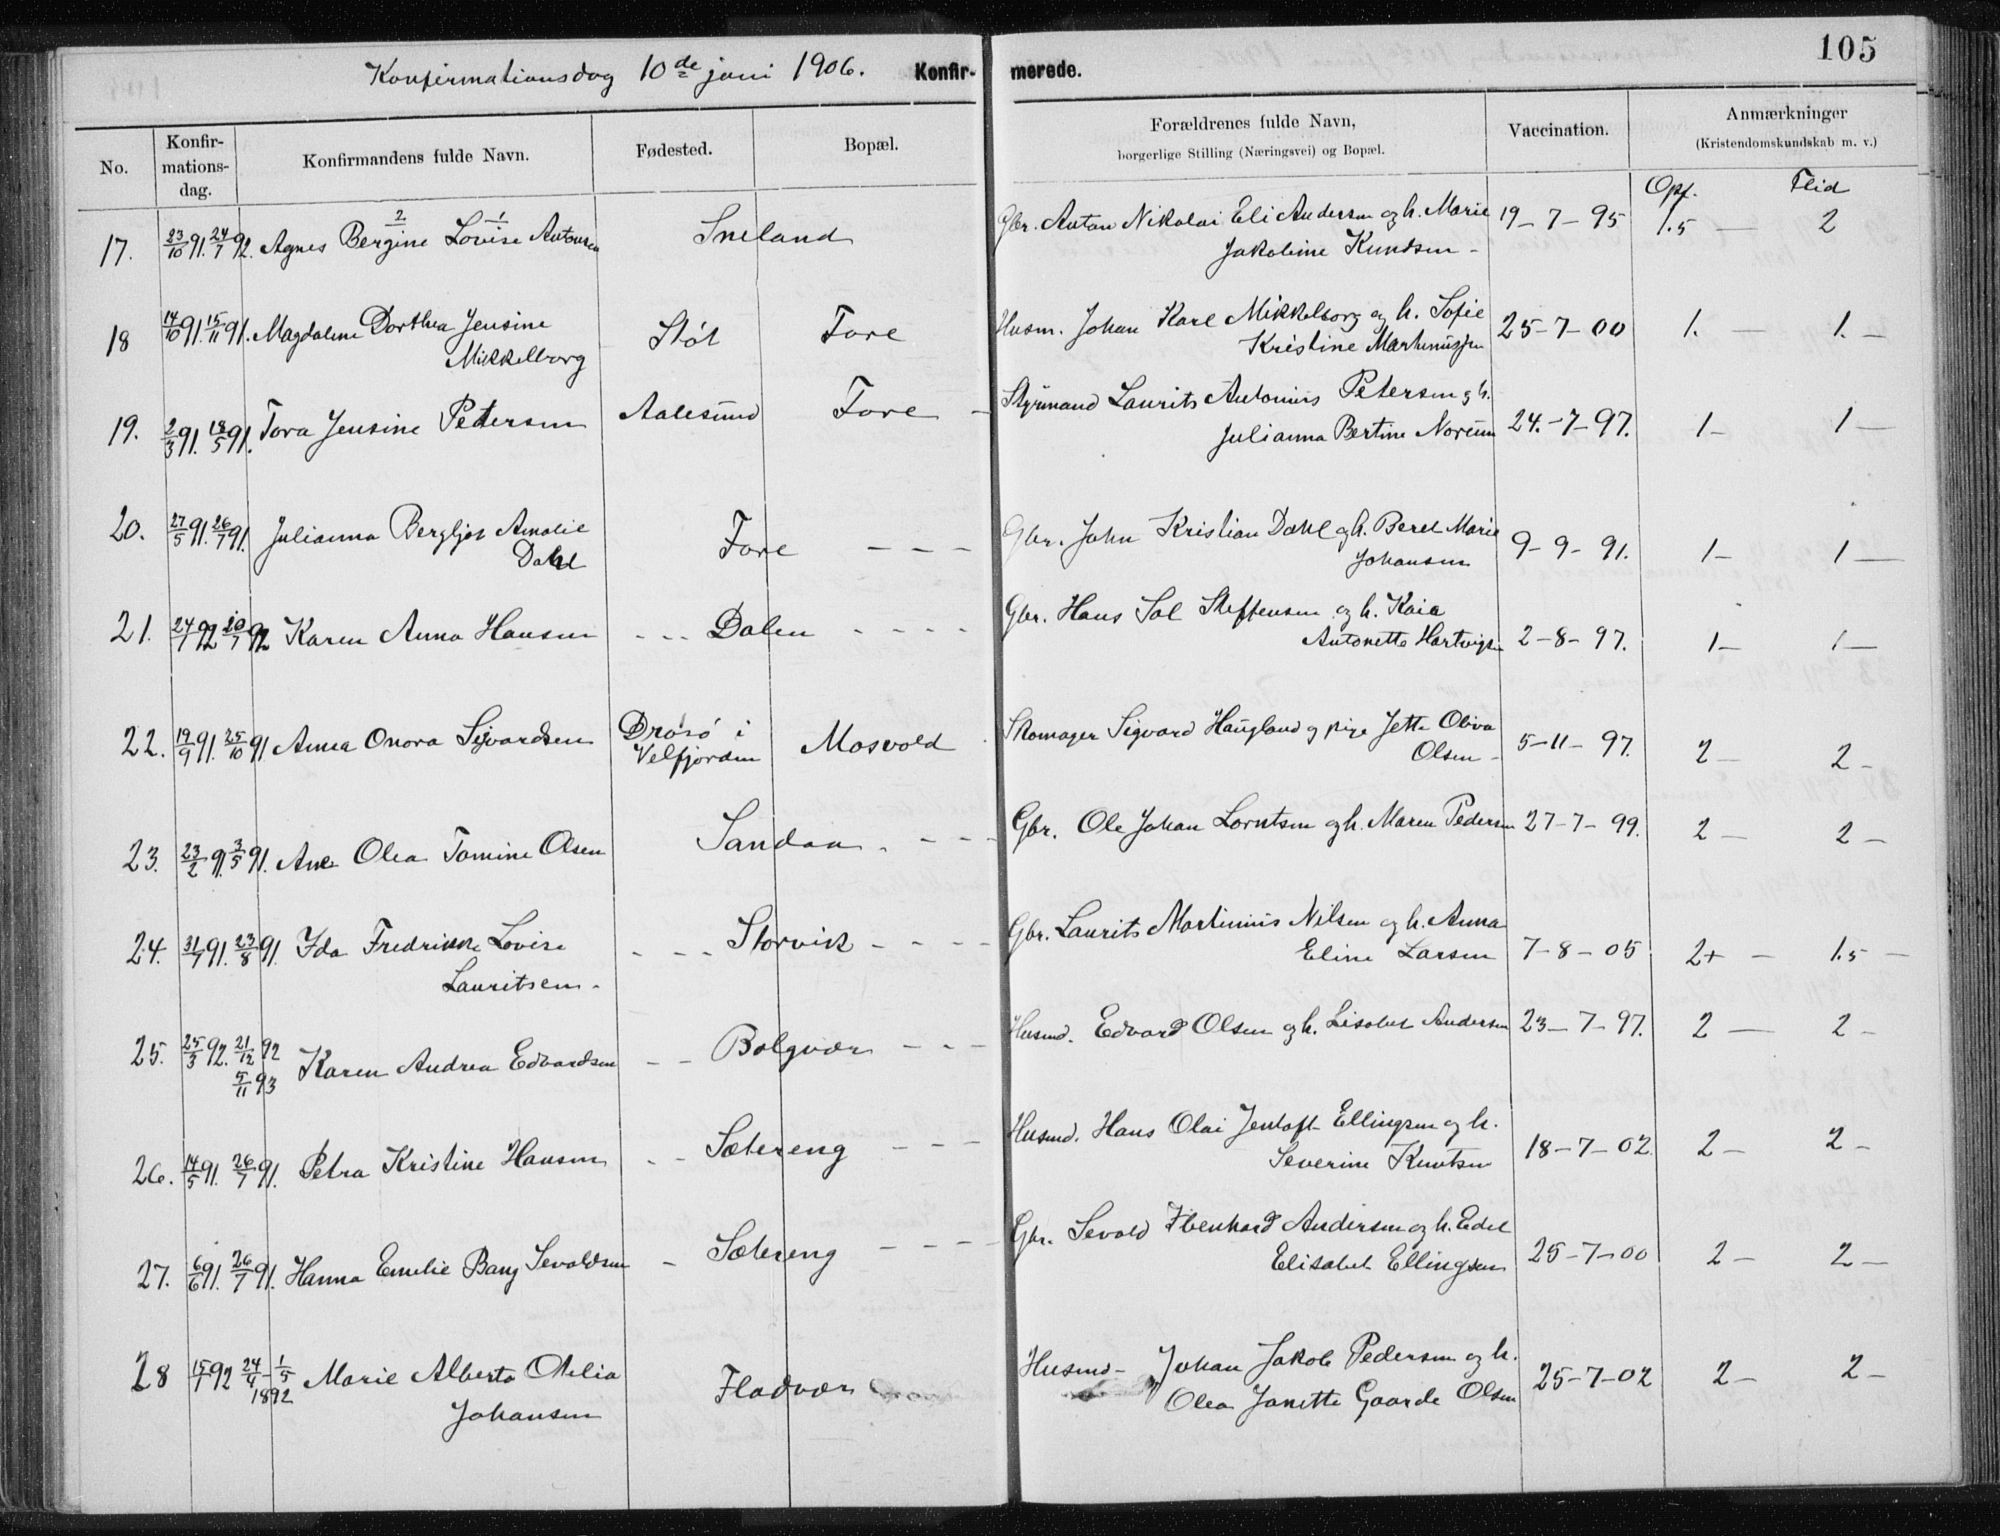 Konfirmationsdag 10de juni 1906. Konfir- merede. 105
No. Konfir-mations-dag. Konfirmandens fulde Navn. Fødested. Bopæl. Forældrenes fulde Navn, borgerlige Stilling (Næringsvei) og Bopæl. Vaccination. Anmærkninger (Kristendomskundskab m. v.)
Opf. Flid
17. 23/10 91. 24/7 92. Agnes Bergine Lovise Antonsen Sneland Gbr. Anton Nikolai Eli Andersen og h. Marie 19-7-95 1.5 — 2
2 1
Jakobine Kundsen -
18 14/10 91. 15/11 91. Magdalene Dorthea Jensine Støt Fore Husm. Johan Karl Mikkelborg og h. Sofie 25-7-00 1. — 1. —
Mikkelborg Kristine Martinussen
19. 2/3 91. 18/5 91. Tora Jensine Petersen Aalesund Fore - Styrmand Laurits Antonius Petersen og h. 24.-7-97. 1- 1—
Julianna Bertine Noreum
20. 27/5 91. 26/7 91. Julianna Bergljot Amalie Fore - - - Gbr. John Kristian Dahl og h. Beret Marie 9-9-91. 1- 1—
Dahl Johansen
21. 24/1 92 20/7 92 Karen Anna Hansen - - - Dalen - - - - Gbr. Hans Sal Steffensen og h. Kaia 2-8-97. 1- 1—
Antonette Hartvigsn
22. 19/9 91. 25/10 91 Anna Onora Sigvardsen Drøsö i Velfjorden Mosvold Skomager Sigvard Haugland og pige Jette Oliva 5-11-97. 2 — 2 -
Olsen -
23. 23/2 91. 3/5 91. Ane Olea Tomine Olsen Sandaa - - - Gbr. Ole Johan Lorntsen og h. Maren Pedersn 27-7-99. 2 — 2 —
24. 31/7 91. 23/8 91. Ida Fredrikke Lovise - - - Storvik - - - - Gbr. Laurits Martinius Nilsen og h. Anna 7-8-05 2+ — 1.5 —
Lauritsen - Eline Larsen
25. 25/3 92. 21/12 92 Karen Andrea Edvardsen - - Bolgvær - - - Husmd. Edvard Olsen og h. Lisabet Andersn 23-7-97. 2 — 2 -
5/11 93
26. 14/5 91. 26/7 91. Petra Kristine Hansen - - Sætereng - - - Husmd. Hans Olai Jentoft Ellingsen og h. 18-7-02 2 - 2 -
Severine Knutsen
27. 6/6 91. 26/7 91. Hanna Emelie Bang Sevaldsen - Sætereng - - - - Gbr. Sevald Ebenhard Andersen og h. Edel 25-7-00 2 - 2 —
Elisabet Ellingsen
28 15/1 92 24/4 - 1/5 1892 Marie Alberta Otelia Fladvær Husmd - Johan Jakob Pedersen og h. 25-7-02 2 - 2 -
Johansen Olea Janette Gaarde Olsen